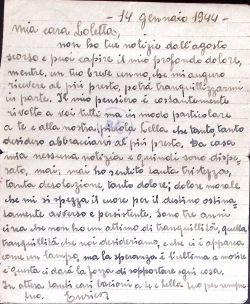 - 14 gennaio 1944 -
mia cara Loletta,
non ho tue notizie dall'agosto
scorso e puoi capire il mio profondo dolore,
mentre, un tuo breve cenno, che mi auguro
ricevere al più presto, potrà tranquillizzarmi
in parte. Il mio pensiero è costantemente
rivolto a voi tutti ma in modo particolare
a te e alla nostra piccola bella che tanto, tanto
desidero abbracciarvi al più presto. Da casa
mia nessuna notizia e quindi sono dispe-
rato, mai, mai ho sentito tanta tristezza,
tanta desolazione, tanto dolore; dolore morale
che mi si spezza il cuore per il destino ostina-
tamente avverso e persistente, sono tre anni
circa che non ho un attimo di tranquillità, quella
tranquillità che noi desideriamo, e che ci è apparsa
come un lampo, ma la speranza è l'ultima a morire
e questa ci darà la forza di sopportare ogni cosa.
In attesa tanti cari bacioni a te e bella tuo per sempre
tuo. Enrico